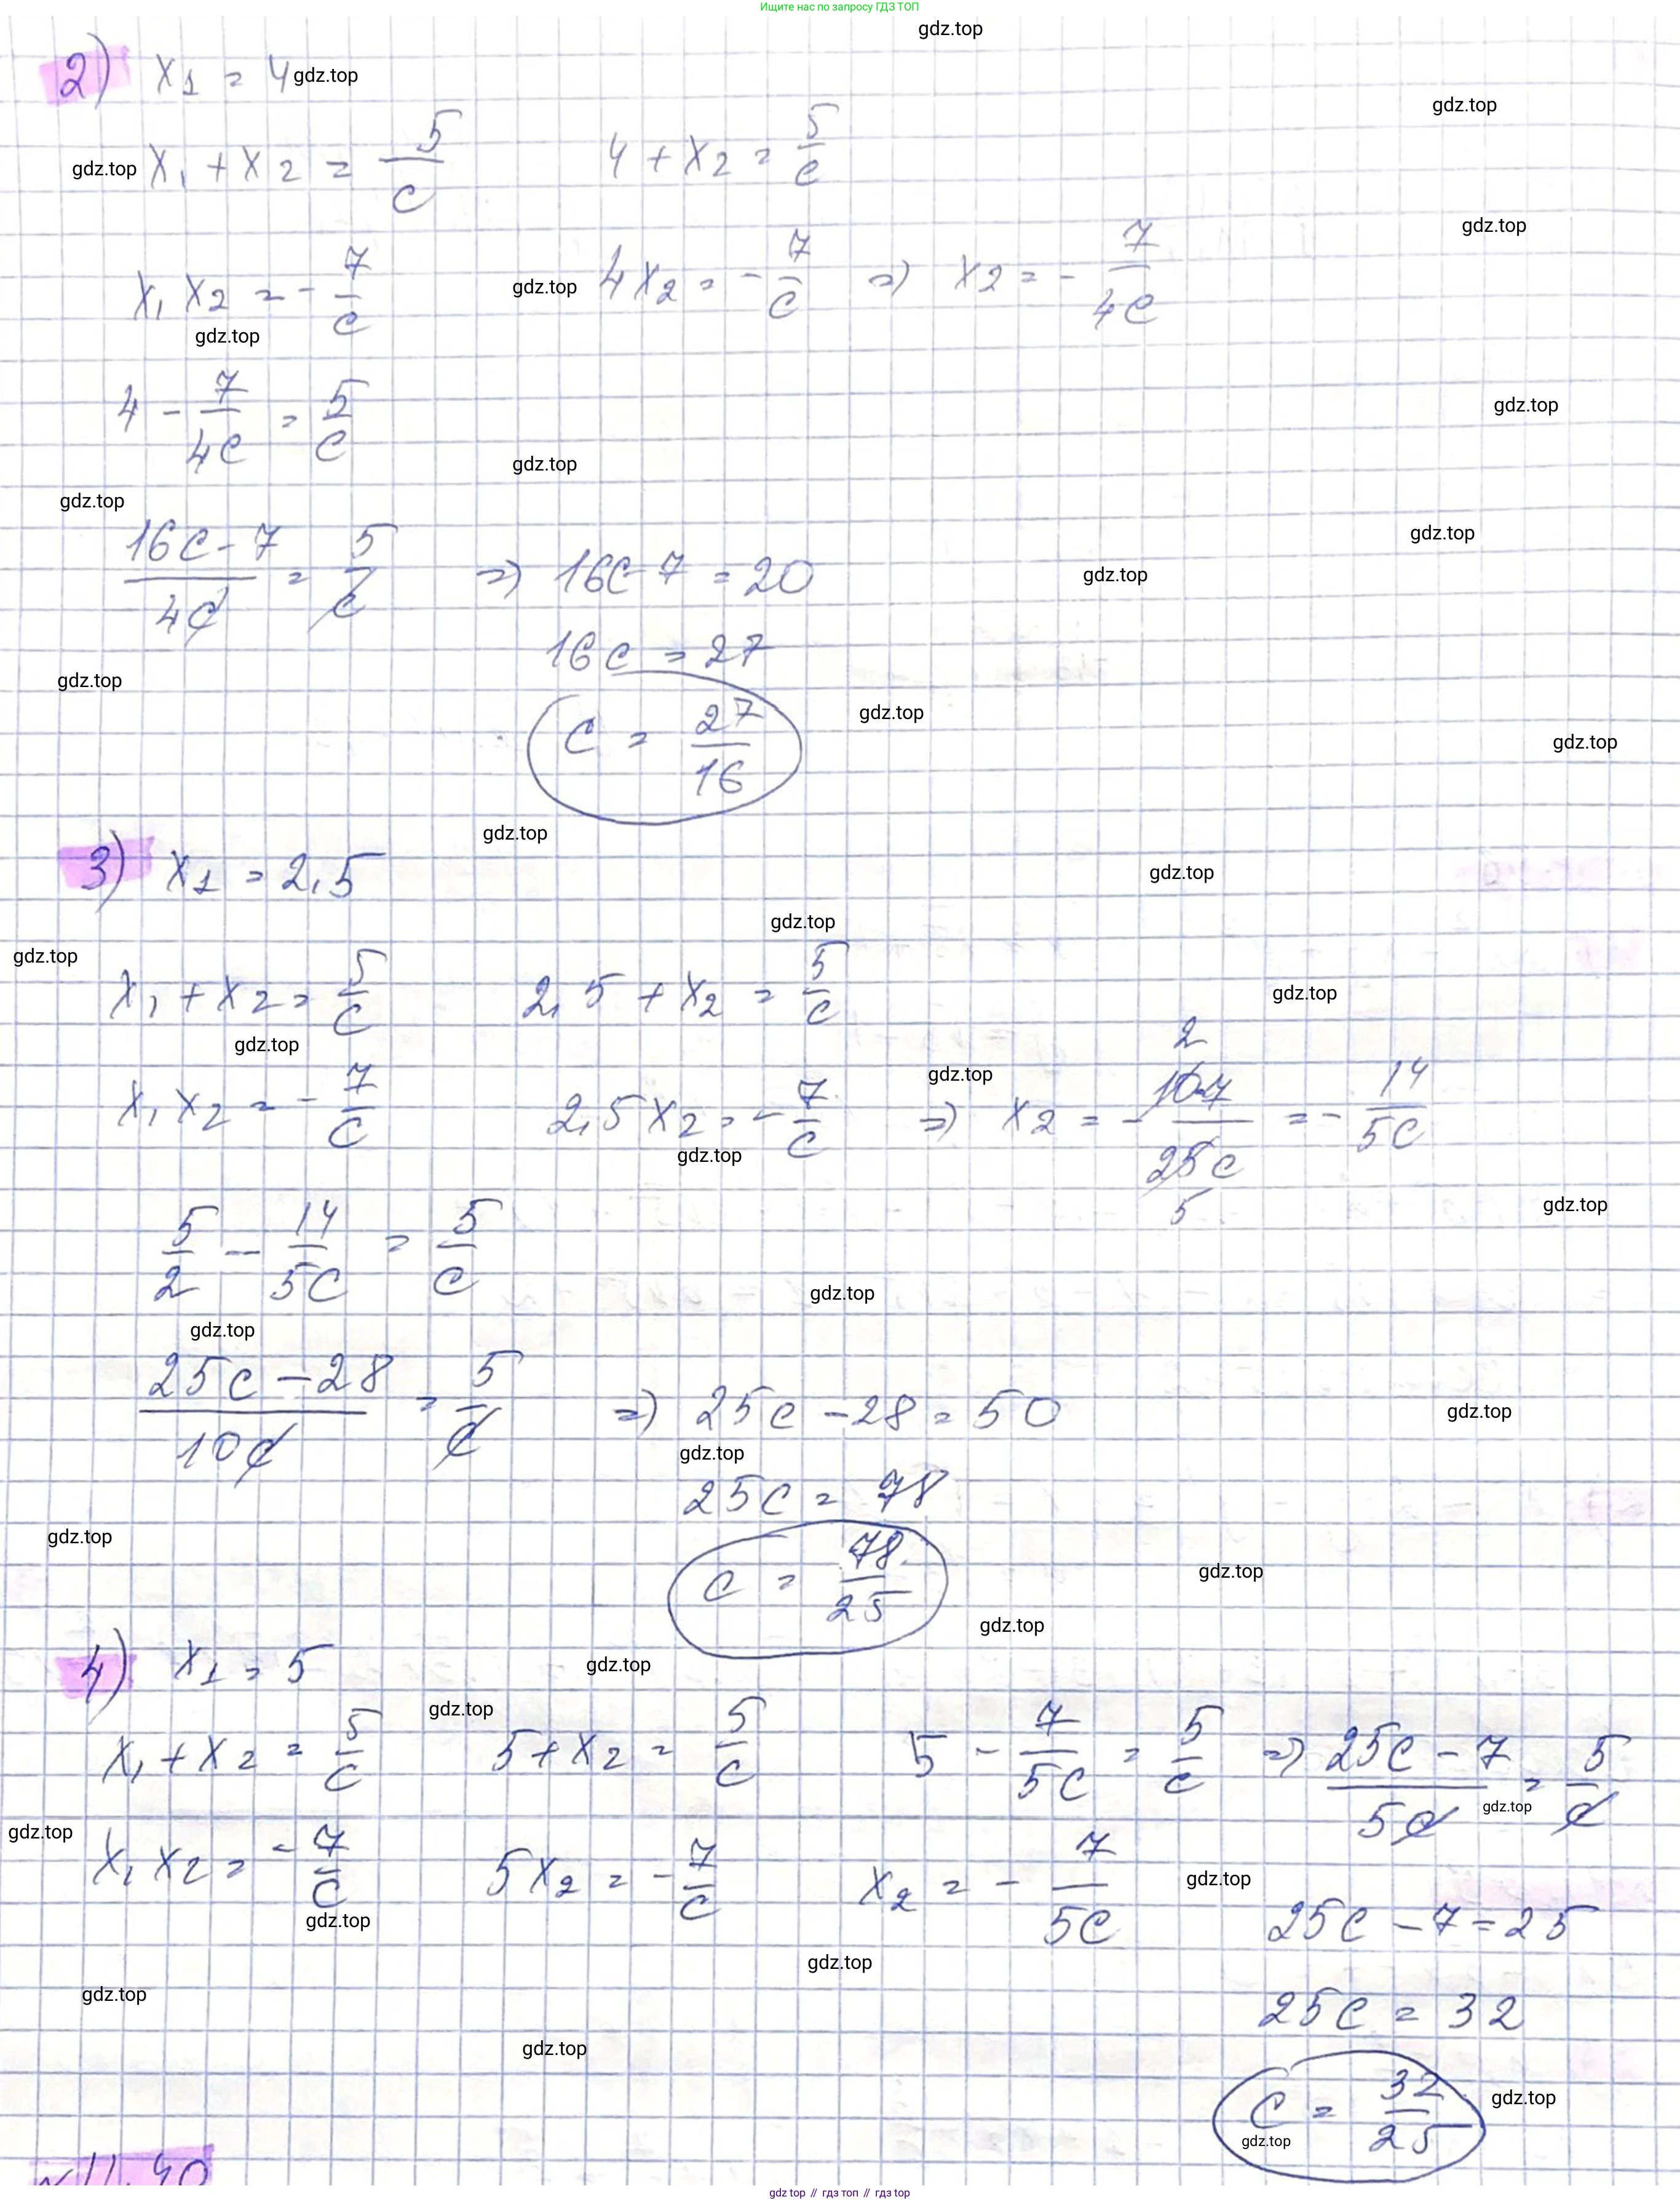 Ищите нас по запросу ГДЗ ТОП
gdz.top
2) x₁ = 4 gdz.top
gdz.top
gdz.top x₁ + x₂ = 5/c    4 + x₂ = 5/c
gdz.top
x₁x₂ = -7/c gdz.top 4x₂ = -7/c => x₂ = -7/4c
gdz.top
4 - 7/4c = 5/c
gdz.top
gdz.top
gdz.top
(16c-7)/4c = 5/c => 16c-7 = 20
gdz.top
gdz.top
16c = 27
gdz.top
c = 27/16
gdz.top
gdz.top
gdz.top
3) x₁ = 2,5
gdz.top
gdz.top
gdz.top
x₁ + x₂ = 5/c    2,5 + x₂ = 5/c
gdz.top
gdz.top
gdz.top
x₁x₂ = -7/c    2,5x₂ = -7/c => x₂ = - 10·7/25c = -14/5c
2
5
gdz.top
gdz.top
5/2 - 14/5c = 5/c
gdz.top
gdz.top
(25c-28)/10c = 5/c => 25c-28 = 50
gdz.top
gdz.top
25c = 78
gdz.top
c = 78/25
gdz.top
gdz.top
4) x₁ = 5
gdz.top
gdz.top
x₁ + x₂ = 5/c    5 + x₂ = 5/c    5 - 7/5c = 5/c => (25c-7)/5c = 5/c
gdz.top
gdz.top
x₁x₂ = -7/c    5x₂ = -7/c    x₂ = -7/5c
gdz.top
gdz.top
25c - 7 = 25
gdz.top
gdz.top
25c = 32
gdz.top
c = 32/25
gdz.top
gdz.top
№11.40
gdz top // гдз топ // гдз top